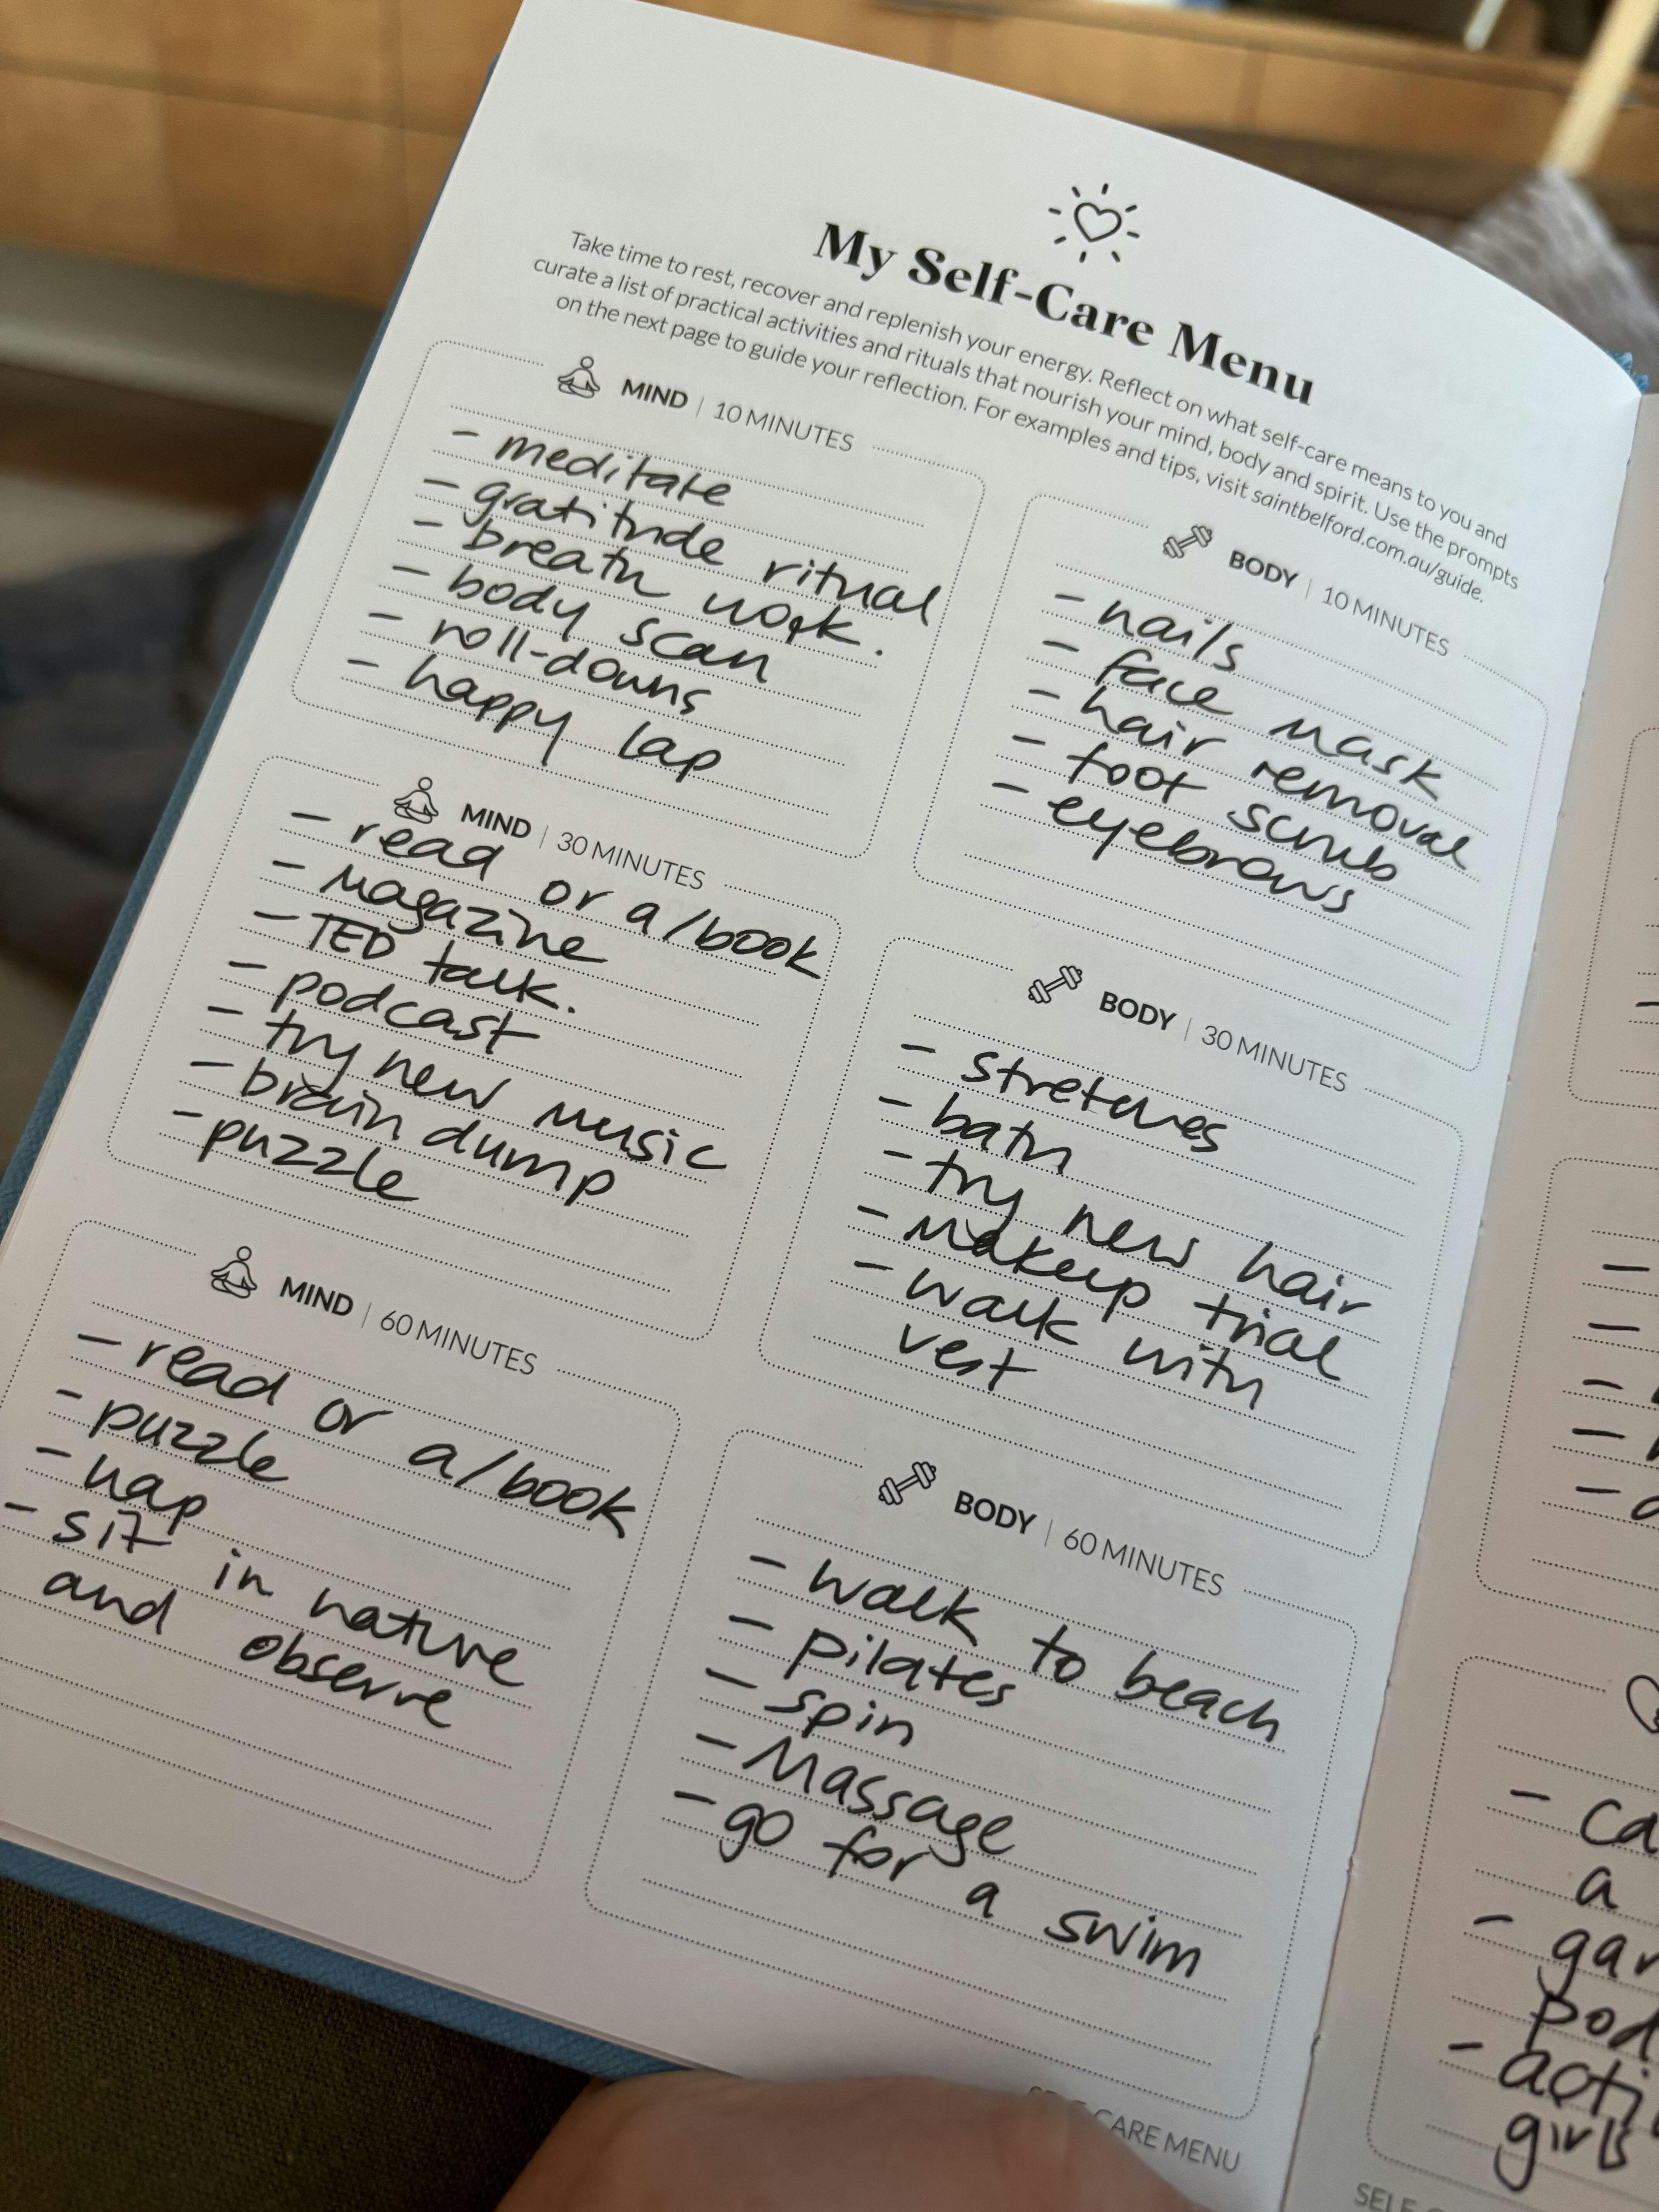 My Self-Care Menu
Take time to rest, recover and replenish your energy. Reflect on what self-care means to you and
curate a list of practical activities and rituals that nourish your mind, body and spirit. Use the prompts
on the next page to guide your reflection. For examples and tips, visit saintbelford.com.au/guide.
MIND | 10 MINUTES
- meditate
- gratitude ritual
- breath work.
- body scan
- roll-downs
- happy lap
MIND | 30 MINUTES
- read or a/book
- magazine
- TED talk.
- podcast
- try new music
- brain dump
- puzzle
MIND | 60 MINUTES
- read or a/book
- puzzle
- nap
- sit in nature
and observe
BODY | 10 MINUTES
- nails
- face mask
- hair removal
- foot scrub
- eyebrows
BODY | 30 MINUTES
- stretches
- bath
- try new hair
- makeup trial
- walk with
vest
BODY | 60 MINUTES
- walk to beach
- pilates
- spin
- Massage
- go for a swim
CARE MENU
- ca
a
- gar
pod
- acti
girls
SELF